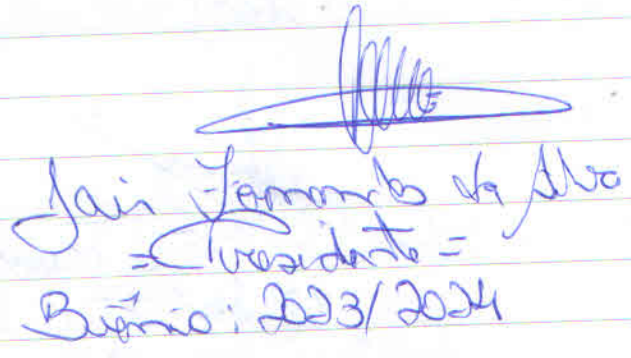 Jair Fernandes da Silva
= Presidente =
Biênio: 2023/2024